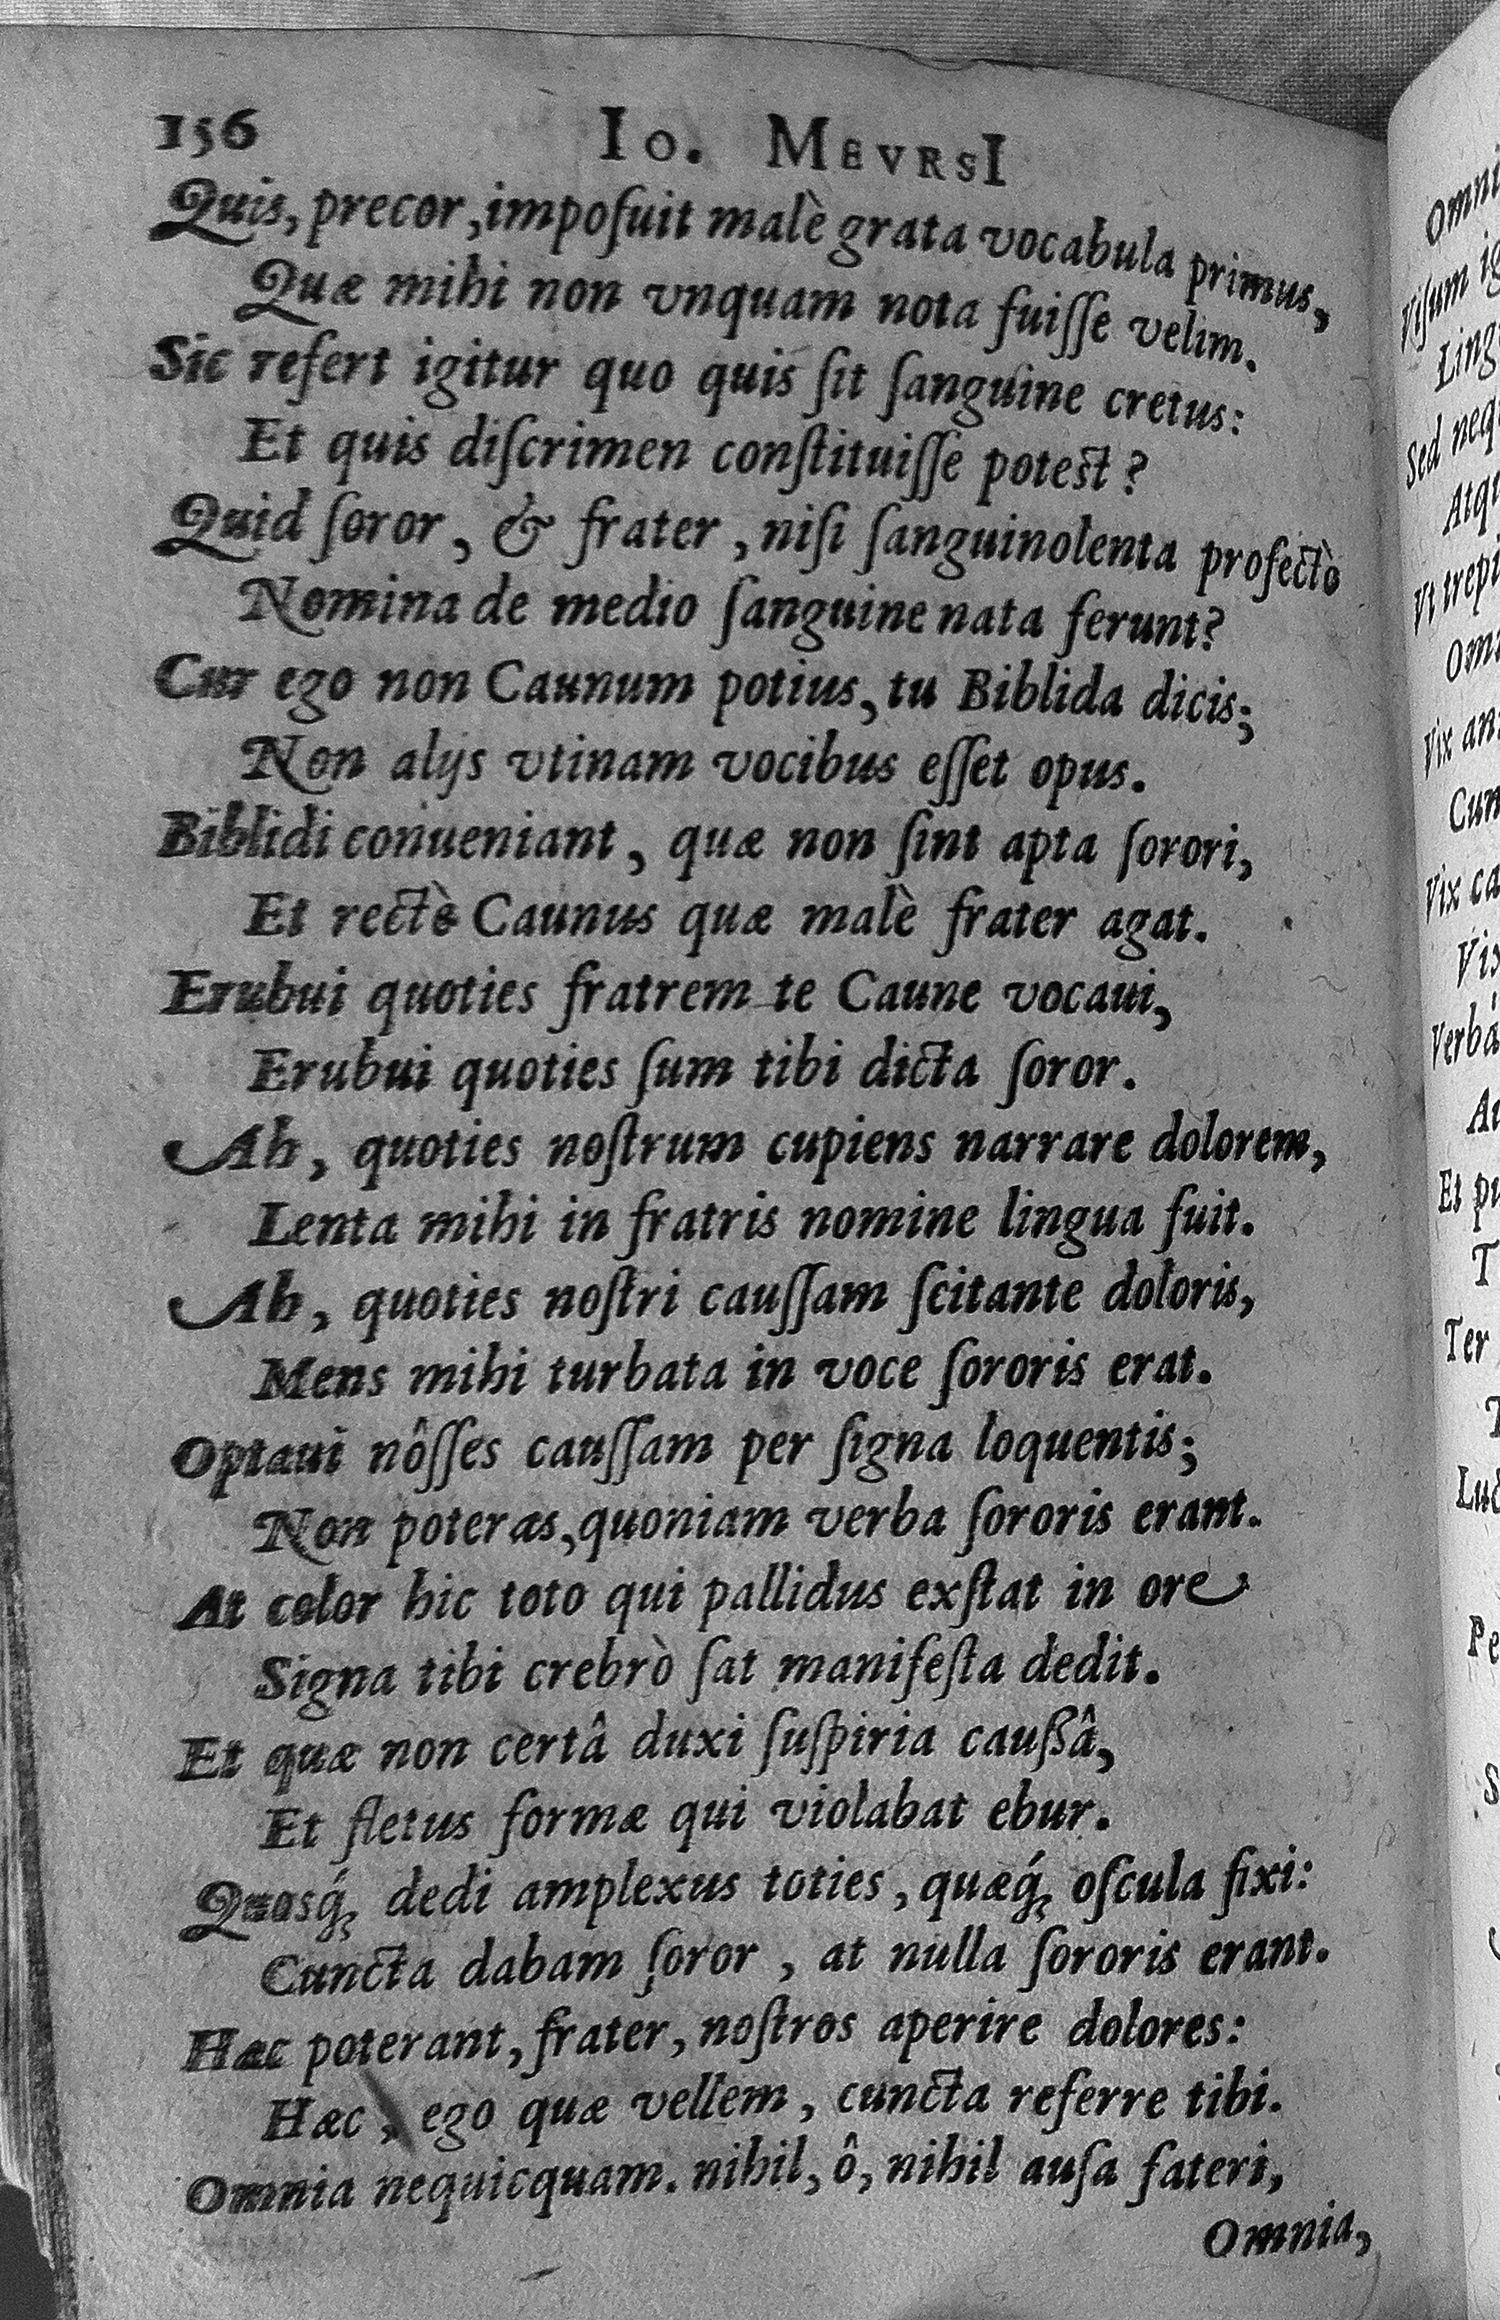 156 Io. MEVRSI
Quis, precor, impoſuit malè grata vocabula primus,
Quæ mihi non vnquam nota fuiſſe velim.
Sic refert igitur quo quis ſit ſanguine cretus:
Et quis diſcrimen conſtituiſſe poteſt?
Quid ſoror, & frater, niſi ſanguinolenta profectò
Nomina de medio ſanguine nata ferunt?
Cur ego non Caunum potius, tu Biblida dicis;
Non alijs vtinam vocibus eſſet opus.
Biblidi conueniant, quæ non ſint apta ſorori,
Et rectè Caunus quæ malè frater agat.
Erubui quoties fratrem te Caune vocaui,
Erubui quoties ſum tibi dicta ſoror.
Ah, quoties noſtrum cupiens narrare dolorem,
Lenta mihi in fratris nomine lingua fuit.
Ah, quoties noſtri cauſſam ſcitante doloris,
Mens mihi turbata in voce ſororis erat.
Optaui nôſſes cauſſam per ſigna loquentis;
Non poteras, quoniam verba ſororis erant.
At color hic toto qui pallidus exſtat in ore
Signa tibi crebrò ſat manifeſta dedit.
Et quæ non certâ duxi ſuſpiria cauſsâ,
Et fletus formæ qui violabat ebur.
Quosq́; dedi amplexus toties, quæq́; oſcula fixi:
Cuncta dabam ſoror, at nulla ſororis erant.
Hæc poterant, frater, noſtros aperire dolores:
Hæc, ego quæ vellem, cuncta referre tibi.
Omnia nequicquam. nihil, ô, nihil auſa fateri,
Omnia,